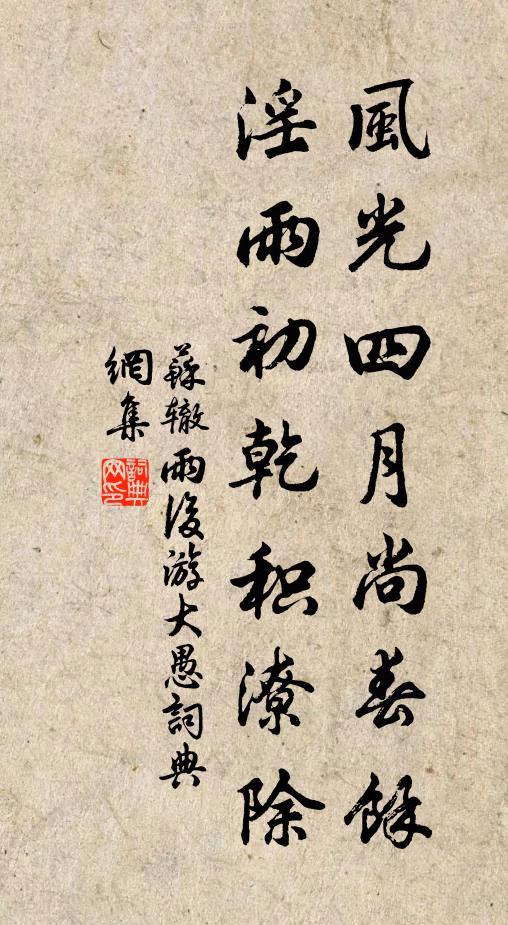 風光四月尚春餘
淫雨初乾积潦除
蘇辙雨後游大愚詞典
網集
詞典
网印